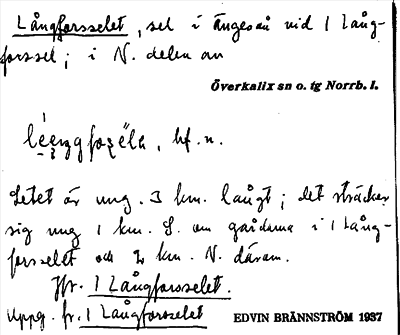 Långforsselet, sel i Ängesån vid 1 Lång-
forssel; i N. delen av
Överkalix sn o. tg Norrb. l.
bf. n.
Selet är ung. 3 km. långt; det sträcker
sig ung 1 km. S. om gårdarna i 1 Lång-
forselet och 2 km. N. därom.
Jfr. 1 Långforsselet.
Uppg. fr. 1 Långforsselet
EDVIN BRÄNNSTRÖM 1937